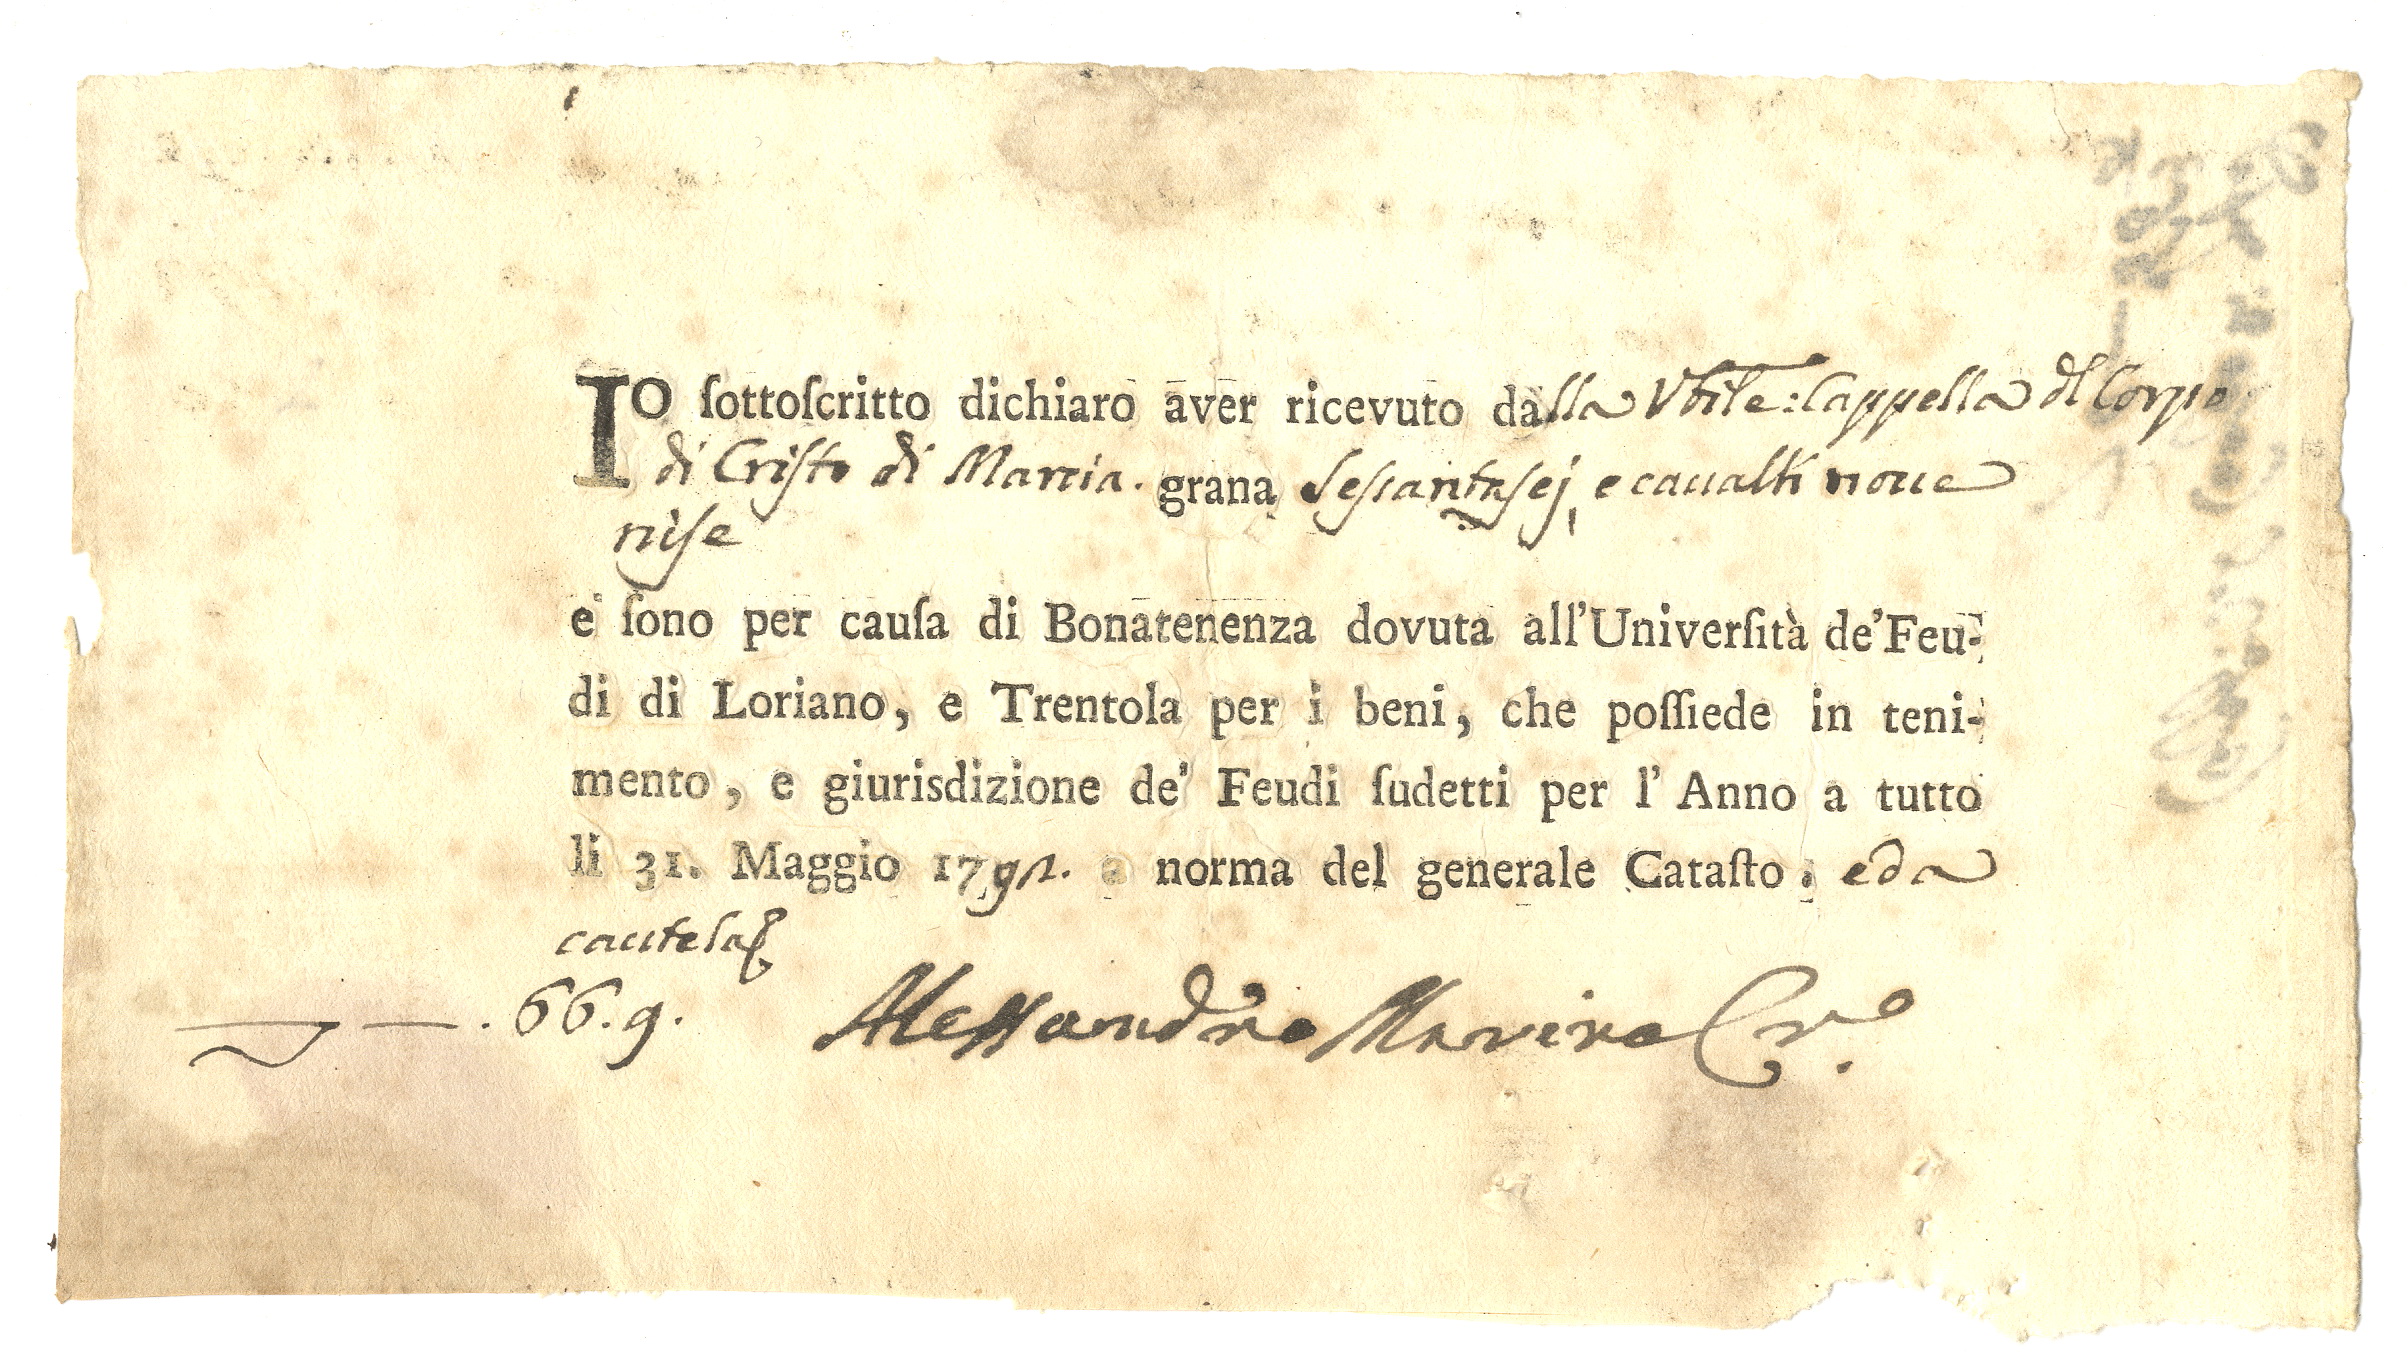 Io ſottoſcritto dichiaro aver ricevuto dalla Vtile: Cappella dl Corpo
di Criſto di Marcia. grana Seſsantaſej, e caualli noue
e ſono per cauſa di Bonatenenza dovuta all'Univerſità de' Feu-
di di Loriano, e Trentola per i beni, che poſſiede in teni-
mento, e giurisdizione de' Feudi ſudetti per l' Anno a tutto
li 31. Maggio 1791. a norma del generale Cataſto, e da
cautela
66.9. Aleſſandro